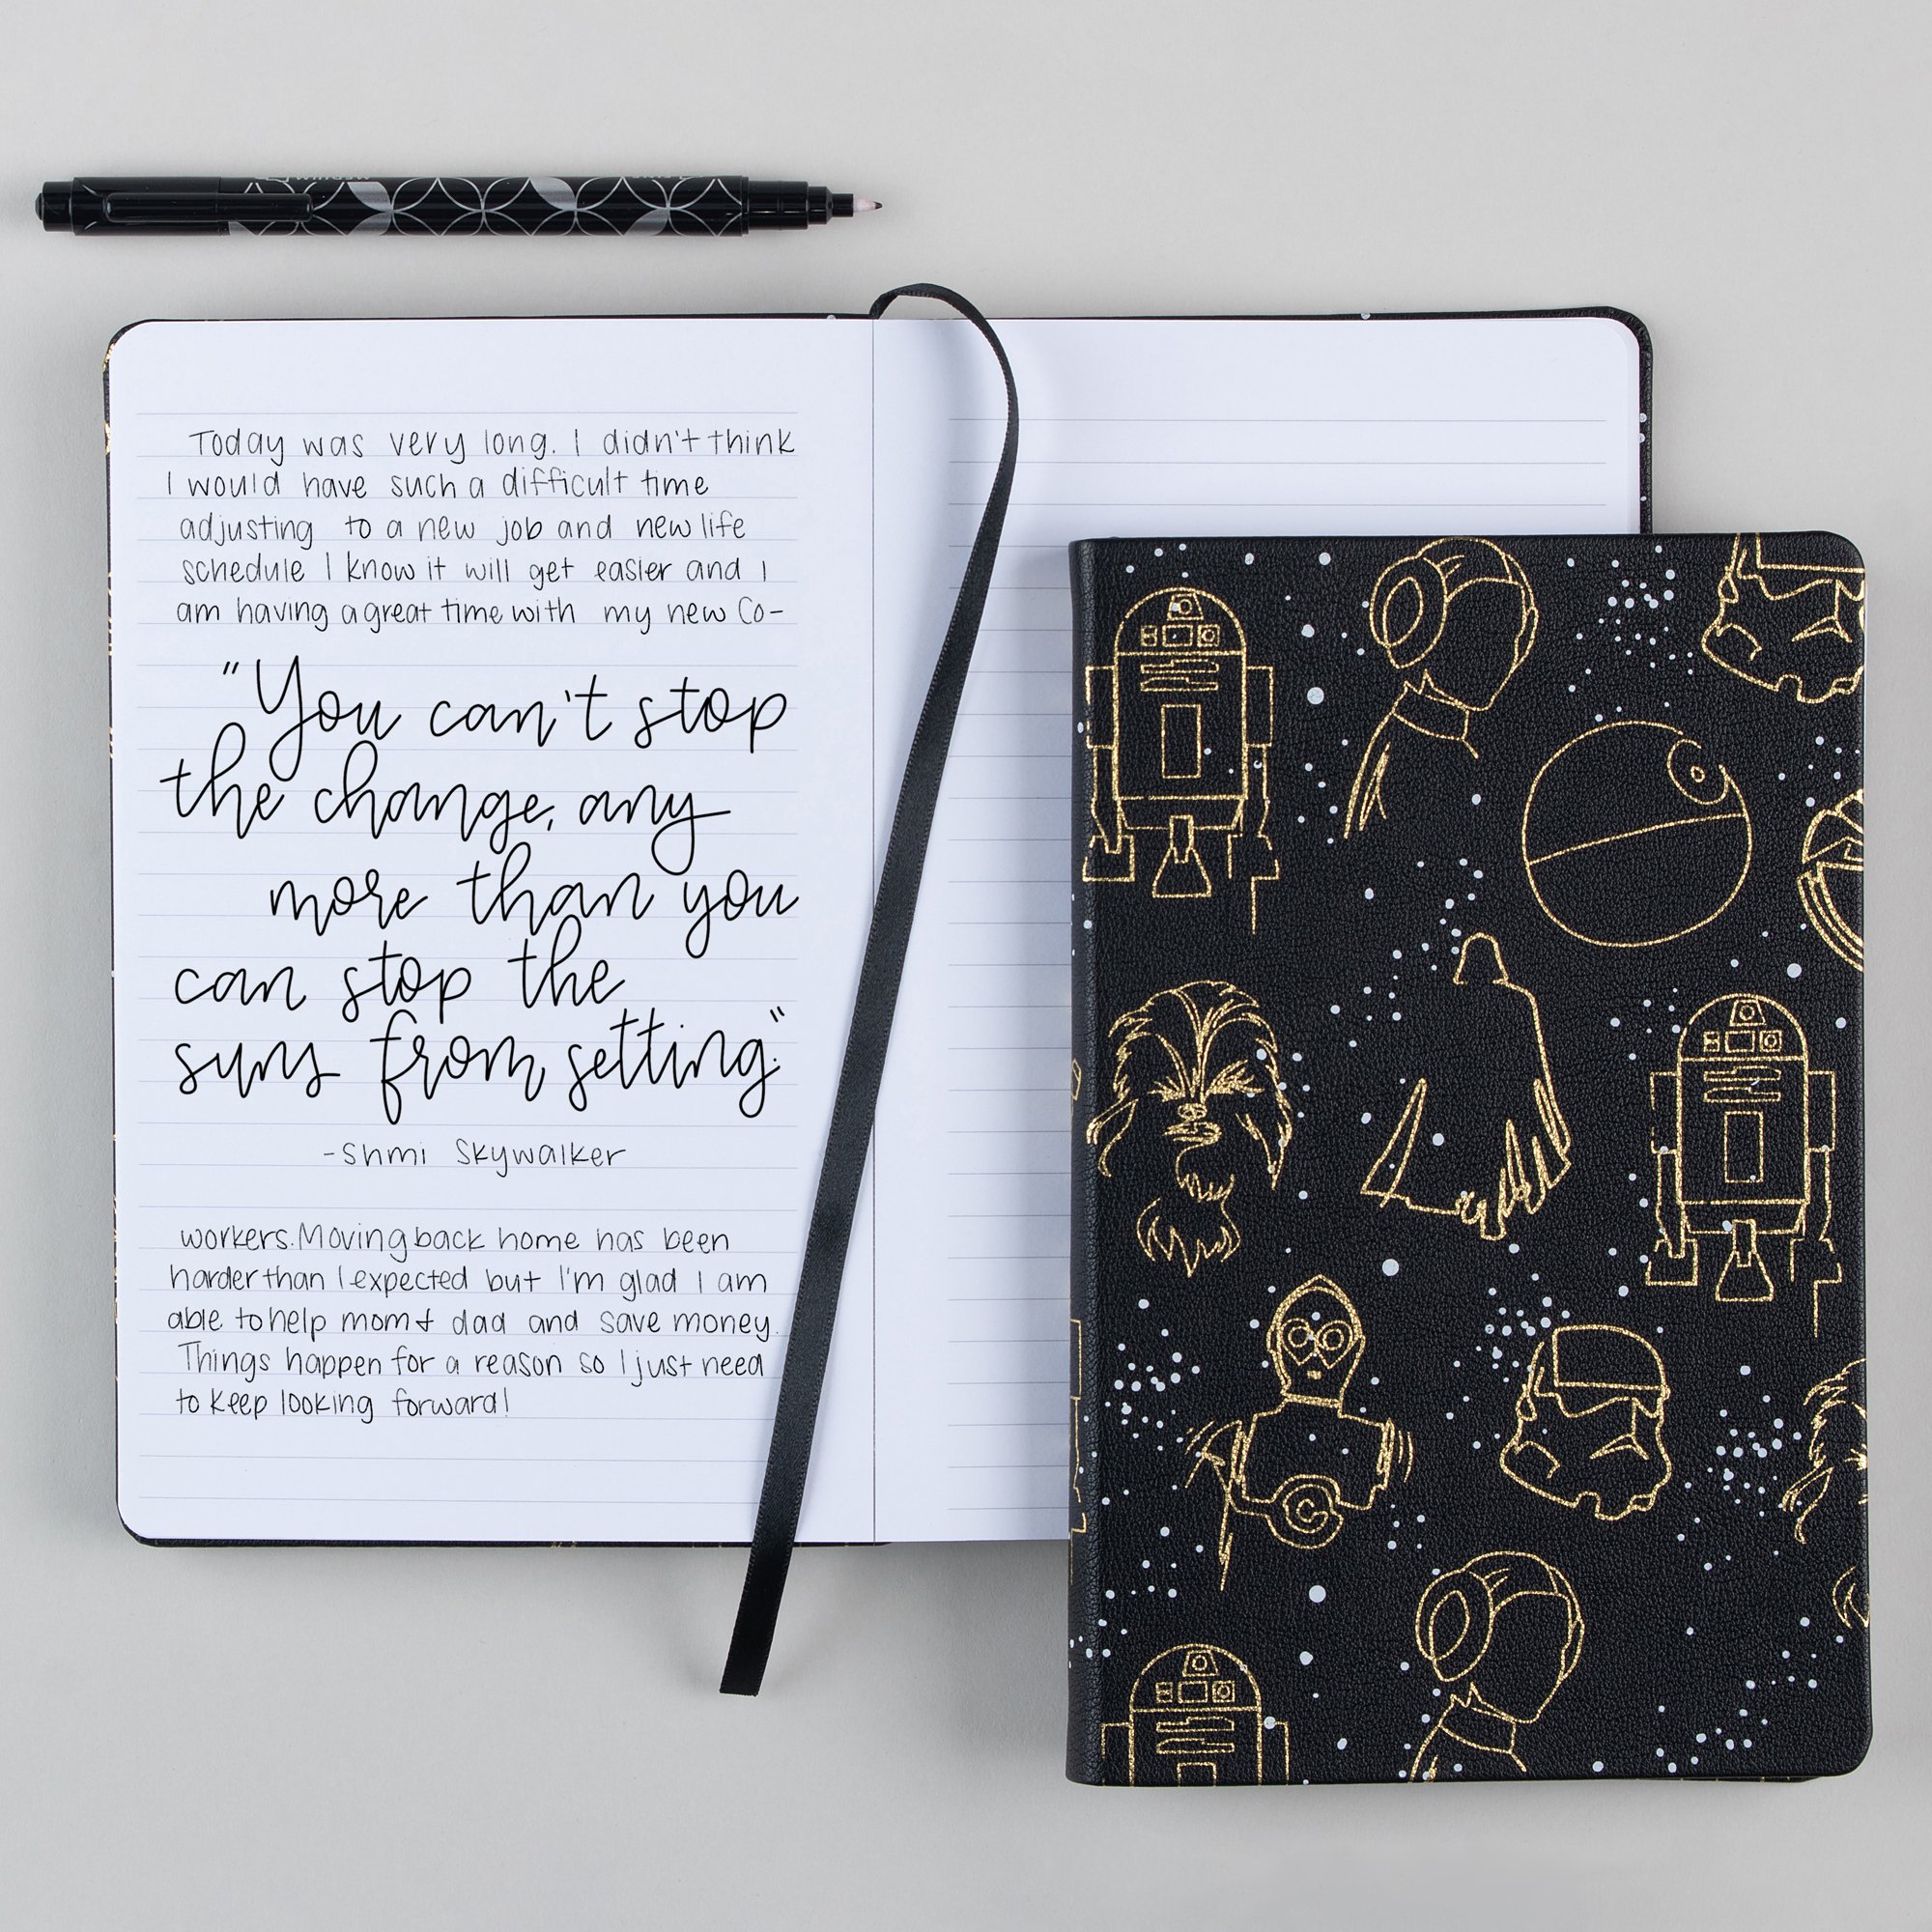 Today was very long. I didn't think
I would have such a difficult time
adjusting to a new job and new life
schedule I know it will get easier and I
am having a great time with my new Co-
"You can't stop
the change, any
more than you
can stop the
suns from setting."
-Shmi Skywalker
workers. Moving back home has been
harder than I expected but I'm glad I am
able to help mom & dad and save money.
Things happen for a reason so I just need
to keep looking forward!